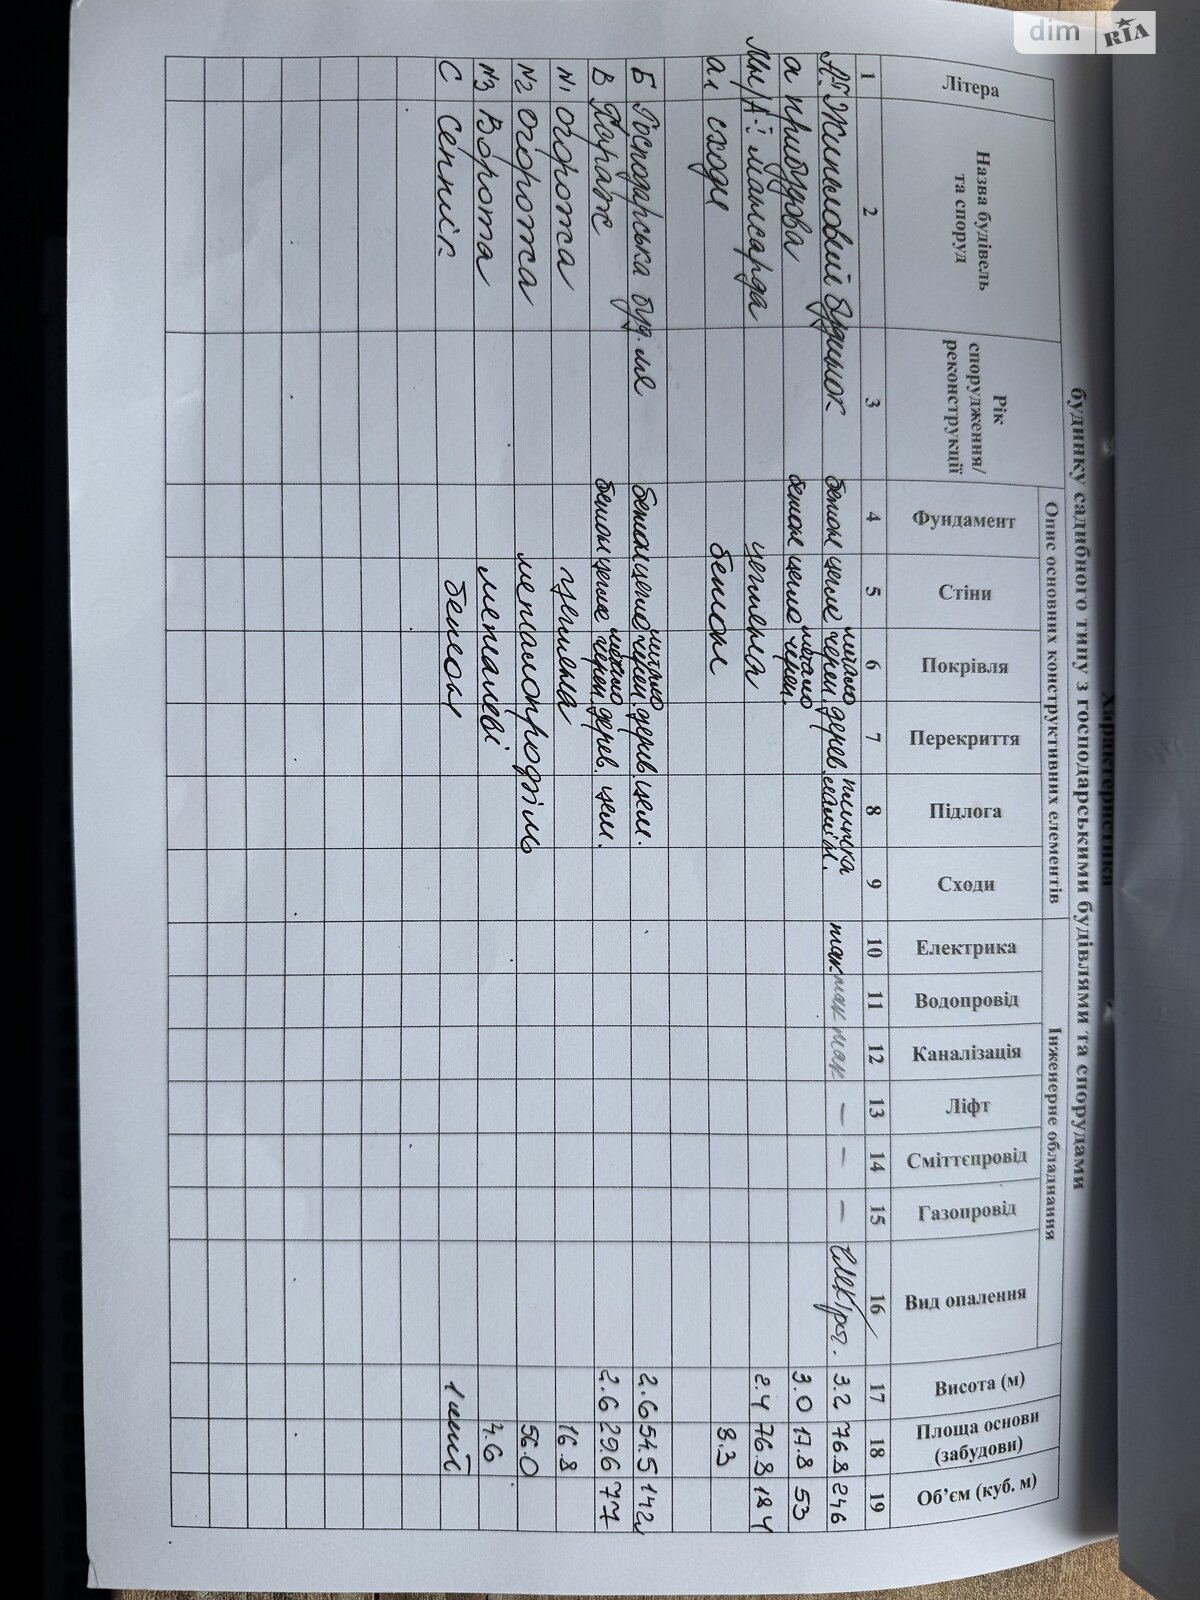 dim RIA
Характеристика
будинку садибного типу з господарськими будівлями та спорудами
Літера
Назва будівель та споруд
Рік спорудження/ реконструкції
Опис основних конструктивних елементів
Інженерне обладнання
Фундамент
Стіни
Покрівля
Перекриття
Підлога
Сходи
Електрика
Водопровід
Каналізація
Ліфт
Сміттєпровід
Газопровід
Вид опалення
Висота (м)
Площа основи (забудови)
Об'єм (куб. м)
1 2 3 4 5 6 7 8 9 10 11 12 13 14 15 16 17 18 19
Житловий будинок бетон цегла метало череп. дерев. плитка ламін. так так так – – – електр. 3.2 76.8 246
а прибудова бетон цегла метало череп. 3.0 17.8 53
мансарда цегляна 2.4 76.8 184
а1 сходи бетон 8.3
Б Господарська буд. ля бетон цегла метало череп. дерев. цем. 2.6 54.5 142
В Гараж бетон цегла метало череп. дерев. цем. 2.6 29.6 77
N1 Огорожа цегляна 16.8
N2 Огорожа металопрофіль 56.0
N3 Ворота металеві 4.6
С Септік бетон